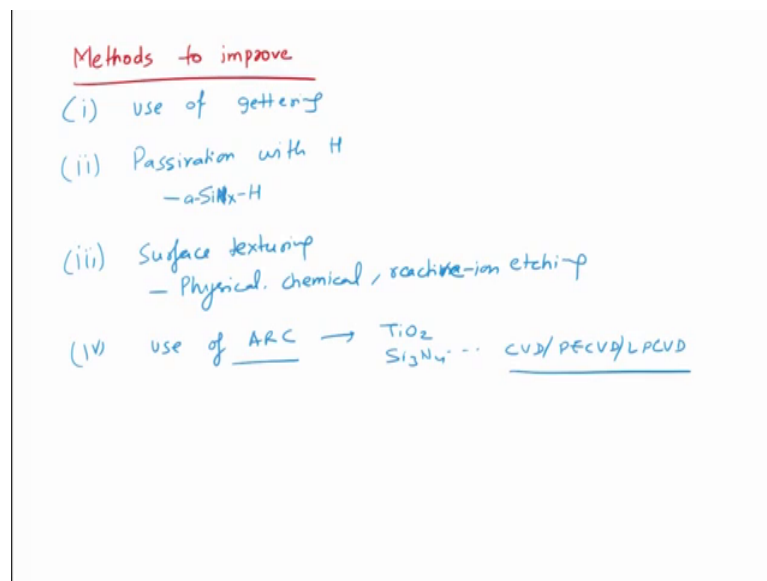 Methods to improve
(i) use of gettering
(ii) Passivation with H
- a-SiNx-H
(iii) Surface texturing
- Physical. chemical, reactive-ion etching
(iv) use of ARC → TiO2
Si3N4... CVD/PECVD/LPCVD